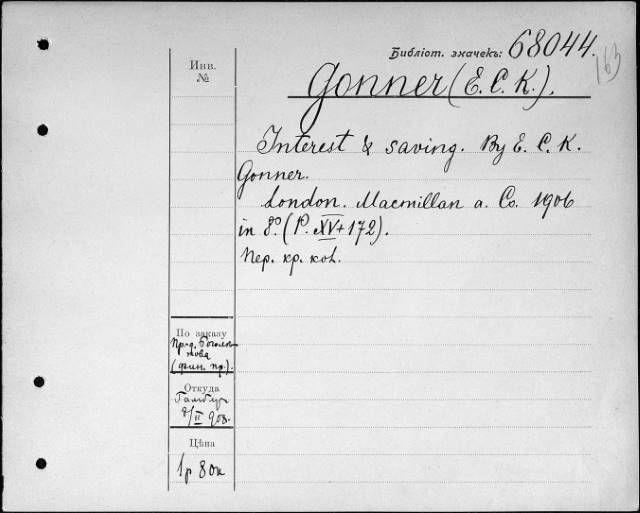 Библіот. значекъ: 68044.
163
Инв.
№
Gonner (E. C. K.).
Interest & saving. By E. C. K.
Gonner.
London. Macmillan a. Co. 1906
in 8º. (P. XV+172).
Пер. кр. кол.
По заказу
(фин. пр.).
Откуда
8/II 908.
Цѣна
1р 80к